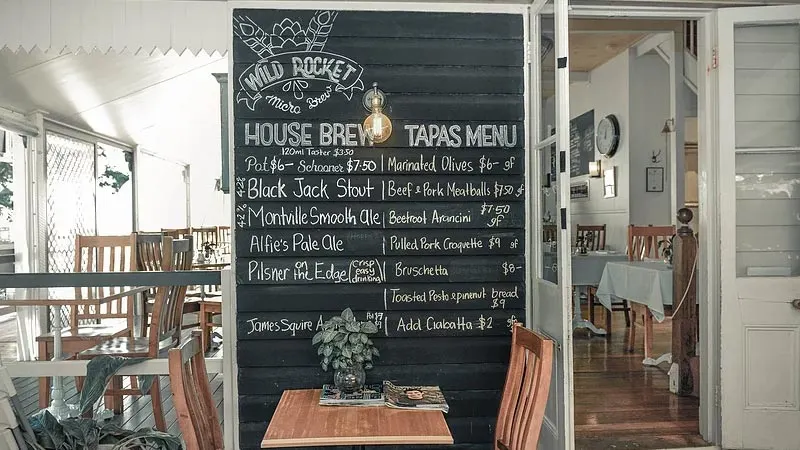 WILD ROCKET
Micro Brew
HOUSE BREW
120ml Taster $3.50
Pot $6- Schooner $7.50
Black Jack Stout
4.2% Montville Smooth Ale
Alfie's Pale Ale
Pilsner on the Edge (crisp easy drinking)
James Squire
TAPAS MENU
Marinated Olives $6- gf
Beef & Pork Meatballs $7.50 gf
Beetroot Arancini $7.50 gf
Pulled Pork Croquette $9 gf
Bruschetta $8-
Toasted Pesto & pinenut bread $9
Add Ciabatta $2